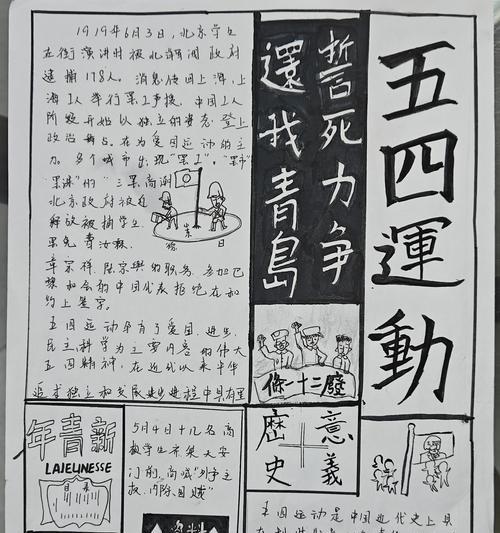 五四運動
誓死力争
還我青島
1919年6月3日,北京学生
在街演讲时被北洋 政府
逮捕178人。消息传回上海,上
海工人举行罢工声援。中国工人
阶级开始以独立的姿态登上
政治舞台。在为爱国运动的主
力。多个城市出现"罢工","罢市"
"罢课"的"三罢高潮
北京政府被迫
释放被捕学生
罢免曹汝霖、
章宗祥、陆宗舆的职务,参加巴
黎和会的中国代表拒绝在和
约上签字。
五四运动孕育了爱国、进步、
民主科学为主要内容的伟大
五四精神,在近代以来中华
追求独立和发展进步进程中具有里
日
條一十二廢
新青年
LAJEUNESSE
5月4日十几名高
校学生云集天安
门前,高喊"外争主
权,内除国贼"
歷史
意義
五四运动是中国近代史上具
资料